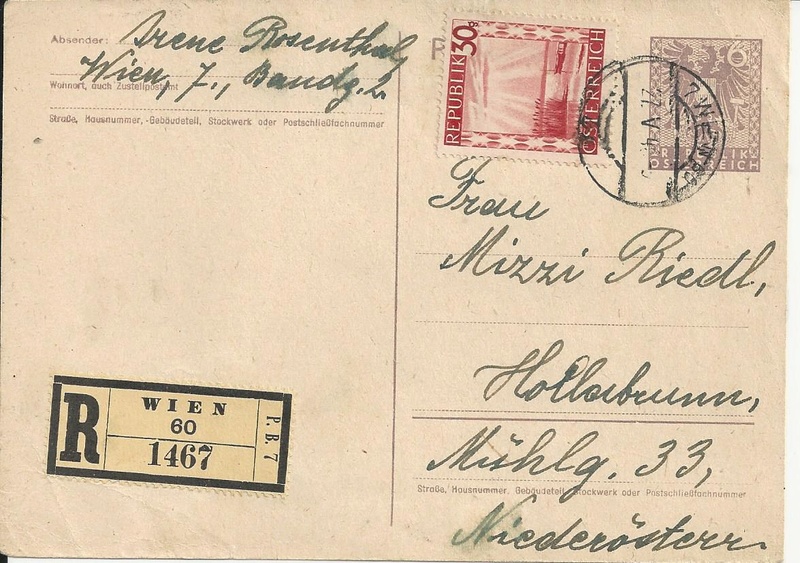 Absender: Irene Rosenthal
Wien, 7., Bandg. 2
Wohnort, auch Zustellpostamt
Straße, Hausnummer, Gebäudeteil, Stockwerk oder Postschließfachnummer
30
REPUBLIK
ÖSTERREICH
WIEN
REPUBLIK
ÖSTERREICH
Frau
Mizzi Riedl,
Hollabrunn,
Mühlg. 33,
Straße, Hausnummer, Gebäudeteil, Stockwerk oder Postschließfachnummer
Niederösterr.
R
WIEN
60
1467
P.B.7